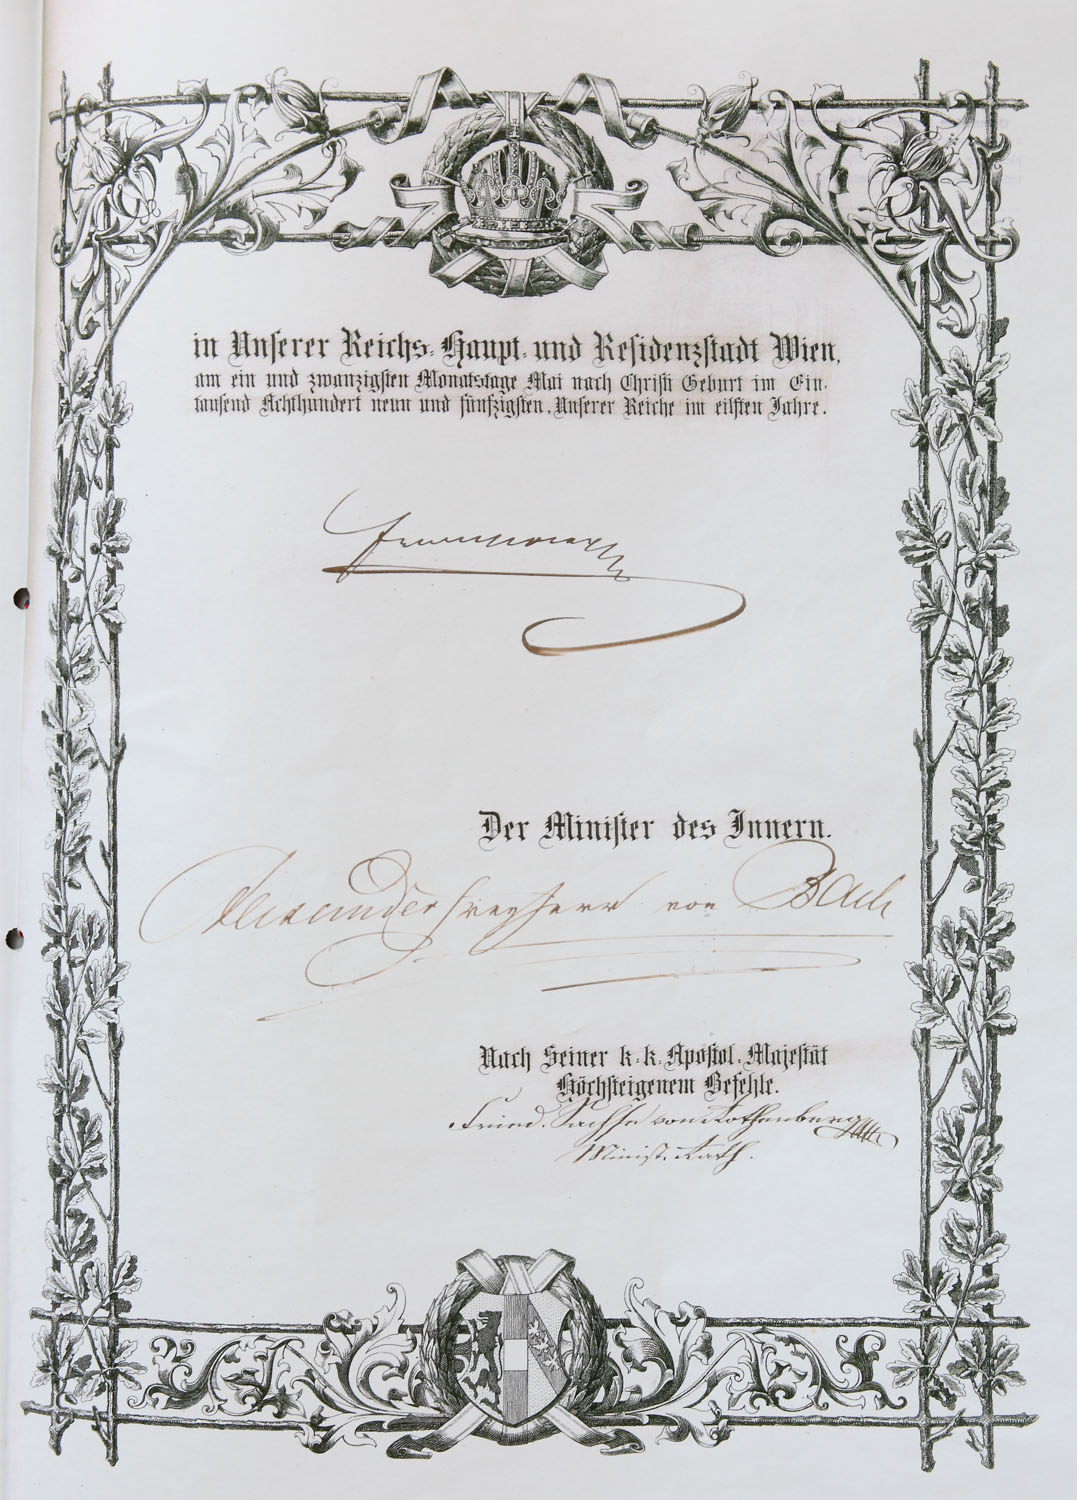 in Unserer Reichs-Haupt- und Residenzstadt Wien,
am ein und zwanzigsten Monatstage Mai nach Christi Geburt im Ein-
tausend Achthundert neun und fünfzigsten, Unserer Reiche im eilften Jahre.
Franz Joseph
Der Minister des Innern.
Alexander Freyherr von Bach
Nach Seiner k: k: Apostol. Majestät
Höchsteigenem Befehle.
Sachse von Rothenberg
Minist. Rath.